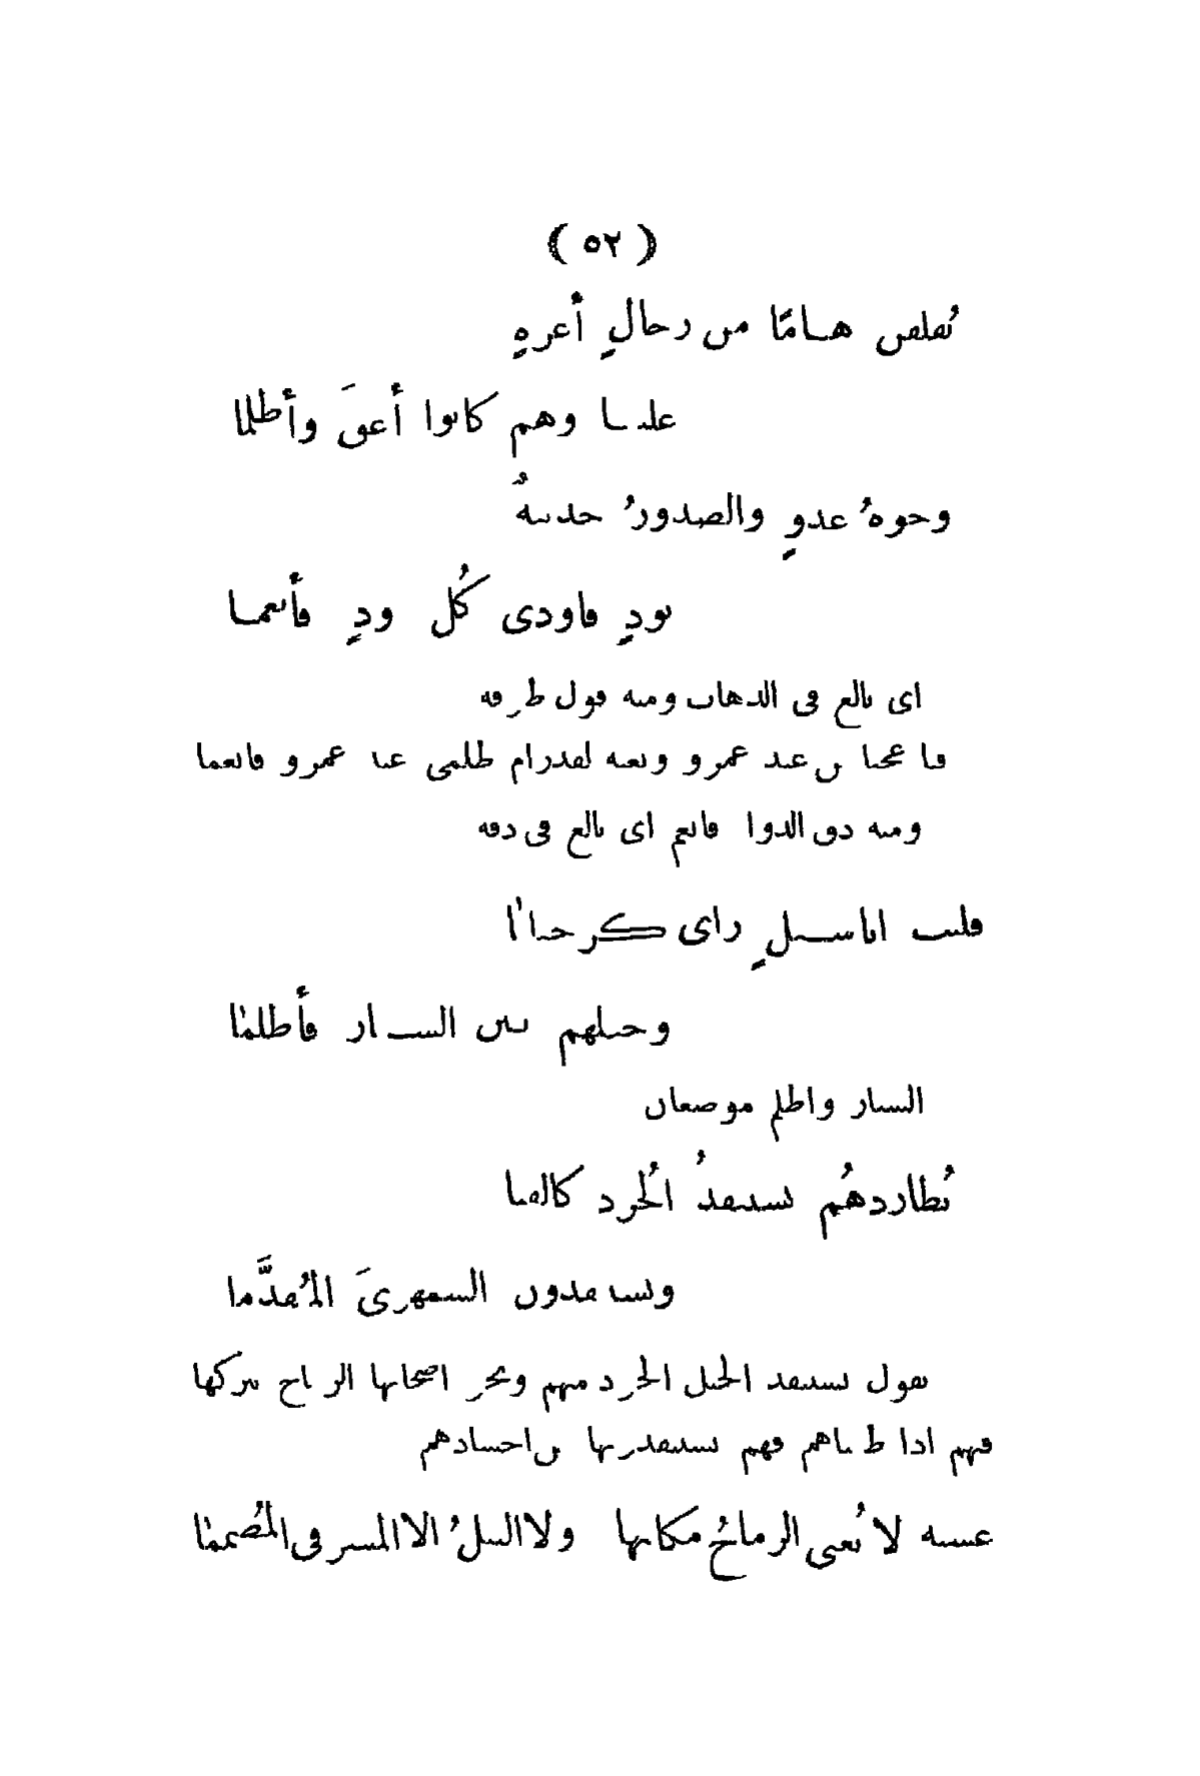 ( ٥٢ )
نُفلقن هـامًا من رجالٍ أعزةٍ
علينـا وهم كانوا أعقَ وأظلما
وجوهُ عدوٍ والصدورُ حديثةٌ
بودٍ فاودى كُل ودٍ فأنعمـا
اى بالغ فى الذهاب ومنه قول طرفه
فيا عجبا من عبد عمرو وبغيه لقدرام ظلمى عبد عمرو فانعما
ومنه دق الدوا فانعم اى بالغ فى دقه
فليت اباسـبلٍ راى كـرخيلنا
وخيلهم بين الستـار فأظلما
الستار واظلم موضعان
نُطاردهُم نستنقذُ الُجرد كالقنا
ويستنقذون السمهرىَ المُقدَّما
يقول نستنقذ الخيل الجرد منهم ونجر اصحابها الرماح نتركها
فيهم اذا طعناهم فهم يستنقذونها من اجسادهم
عشية لا تُغنى الرماحُ مكانها ولاالنبلُ الاالمشرفى المُصمما